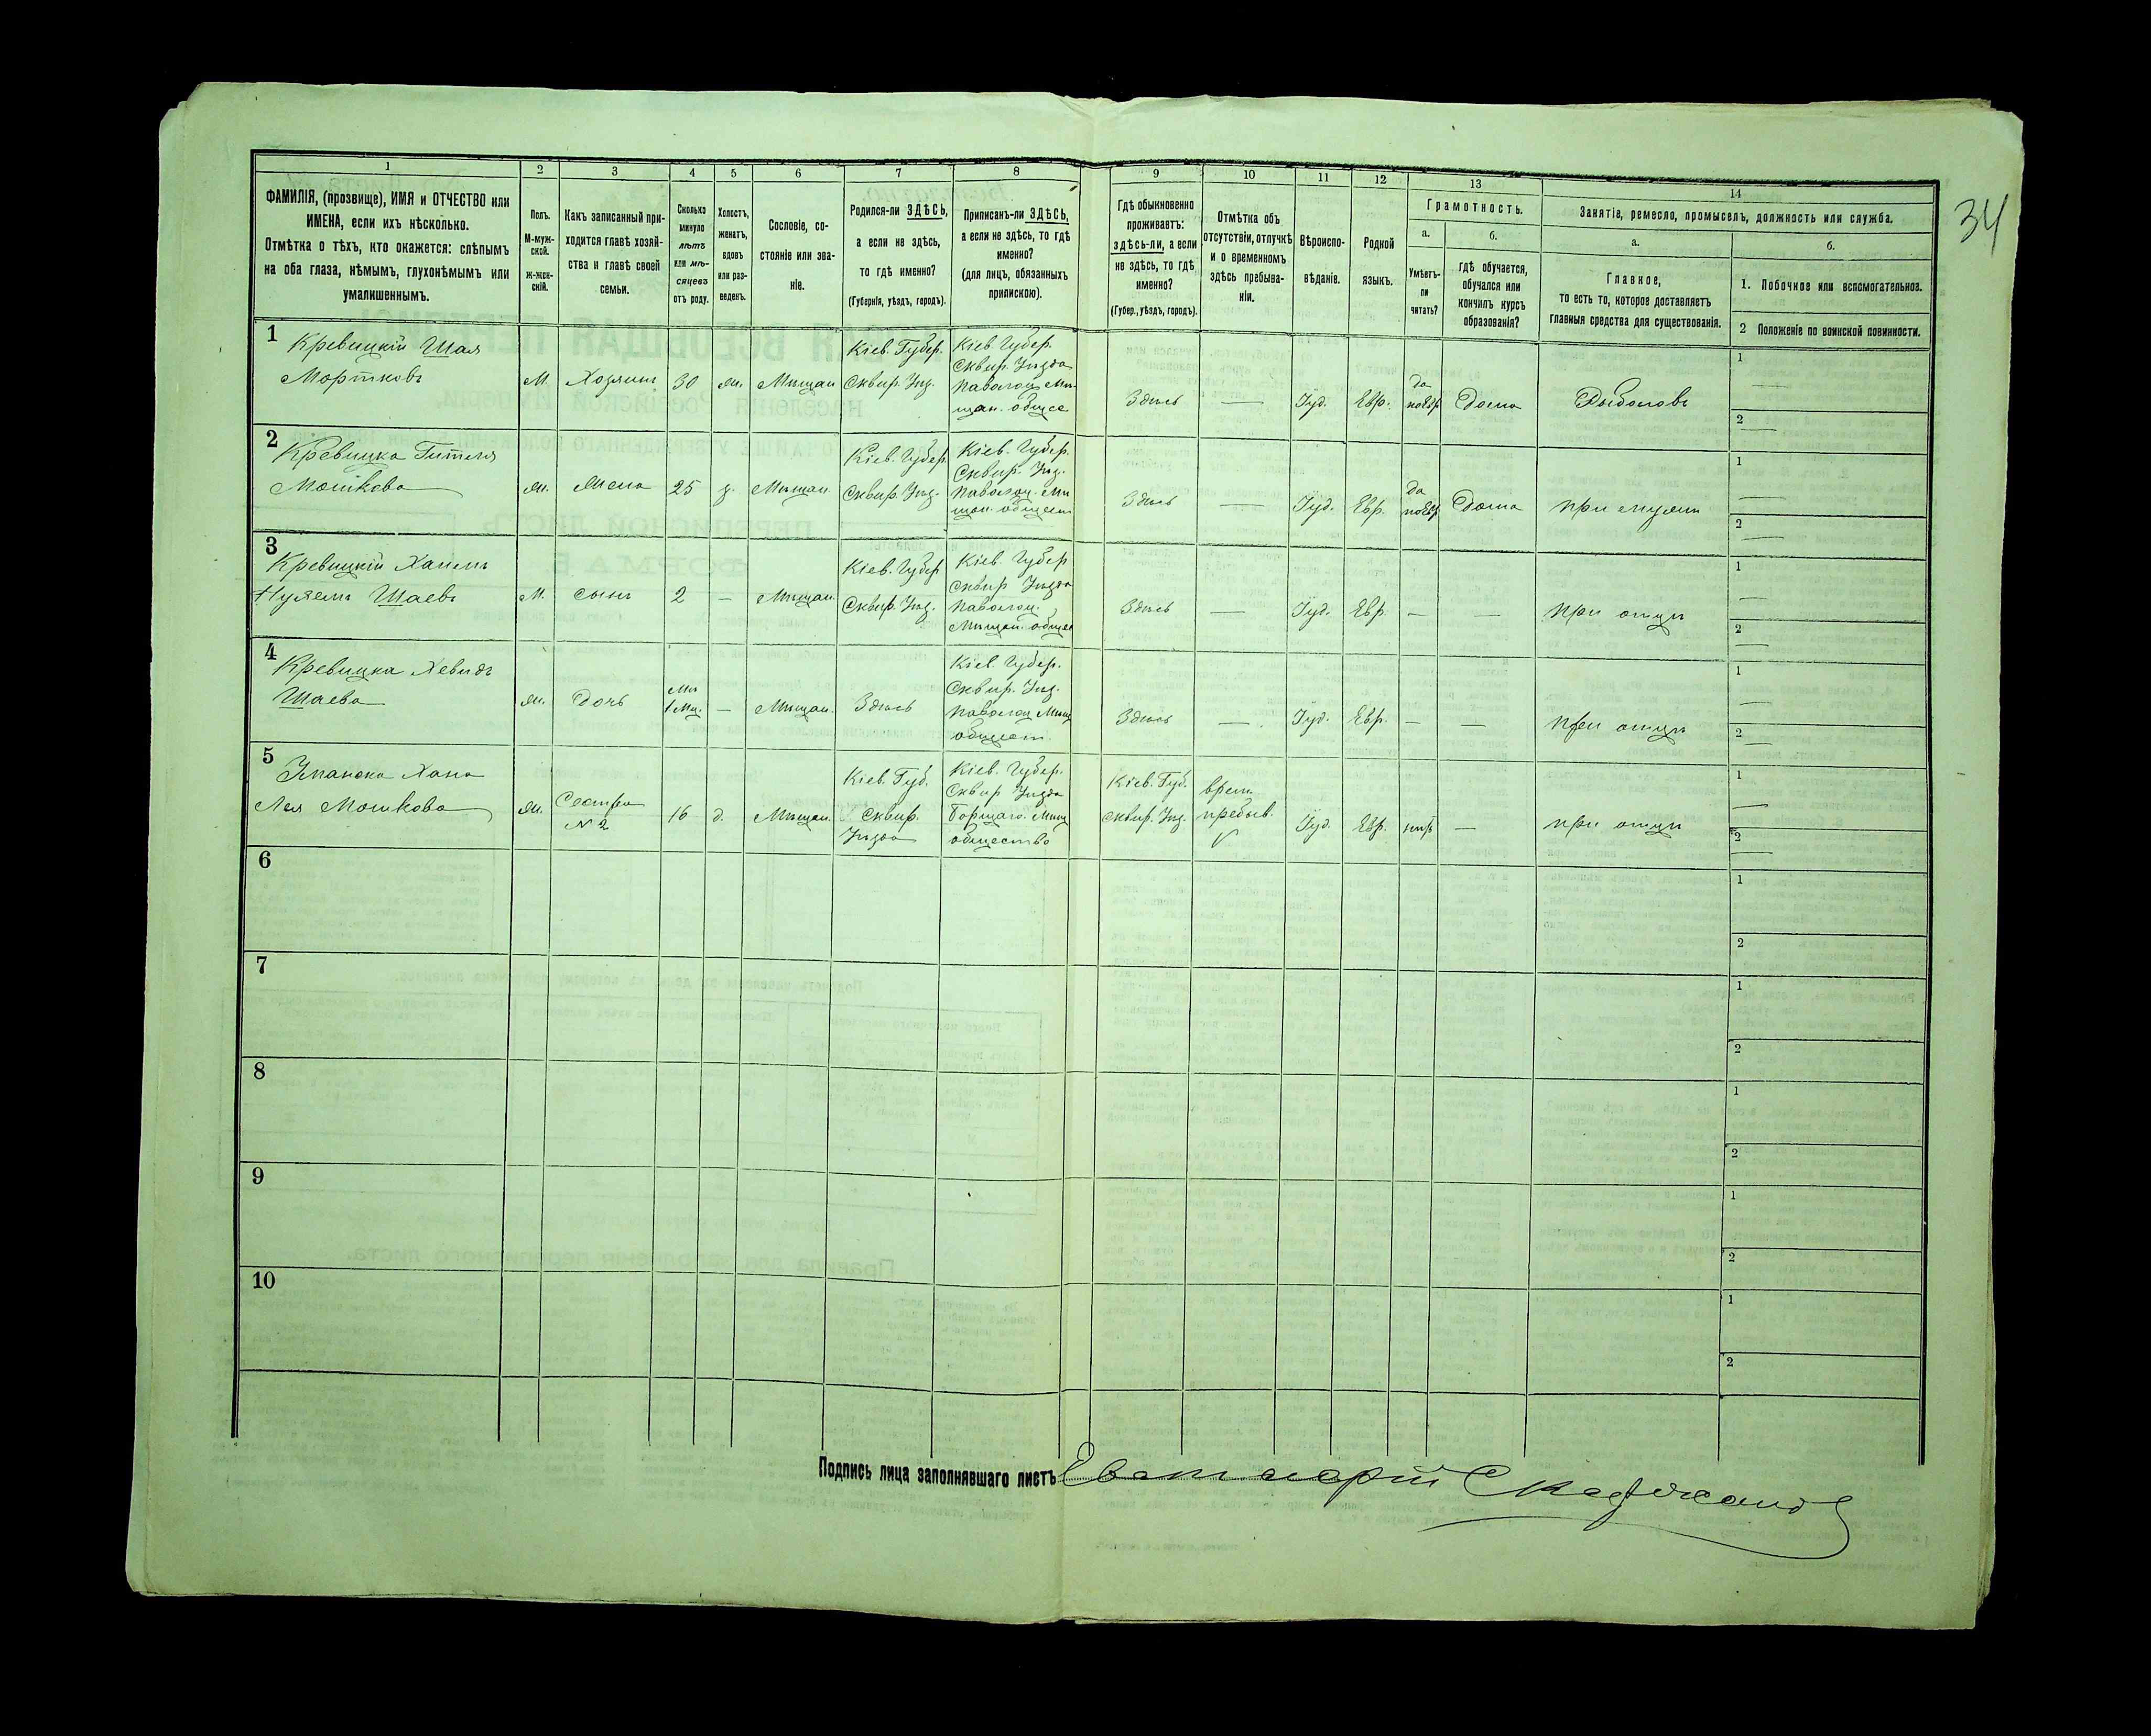 34
1
2
3
4
5
6
7
8
9
10
11
12
13
14
ФАМИЛІЯ, (прозвище), ИМЯ и ОТЧЕСТВО или
ИМЕНА, если ихъ нѣсколько.
Отмѣтка о тѣхъ, кто окажется: слѣпымъ
на оба глаза, нѣмымъ, глухонѣмымъ или
умалишеннымъ.
Полъ.
М-муж-
ской.
ж-жен-
скій.
Какъ записанный при-
ходится главѣ хозяй-
ства и главѣ своей
семьи.
Сколько
минуло
лѣтъ
или мѣ-
сяцевъ
отъ роду.
Холостъ,
женатъ,
вдовъ
или раз-
веденъ.
Сословіе, со-
стояніе или зва-
ніе.
Родился-ли ЗДѢСЬ,
а если не здѣсь,
то гдѣ именно?
(Губернія, уѣздъ, городъ).
Приписанъ-ли ЗДѢСЬ,
а если не здѣсь, то гдѣ
именно?
(для лицъ, обязанныхъ
припискою).
Гдѣ обыкновенно
проживаетъ:
здѣсь-ли, а если
не здѣсь, то гдѣ
именно?
(Губер., уѣздъ, городъ).
Отмѣтка объ
отсутствіи, отлучкѣ
и о временномъ
здѣсь пребыва-
ніи.
Вѣроиспо-
вѣданіе.
Родной
языкъ.
Грамотность.
а.
Умѣетъ-
ли
читать?
б.
гдѣ обучается,
обучался или
кончилъ курсъ
образованія?
Занятіе, ремесло, промыселъ, должность или служба.
а.
Главное,
то есть то, которое доставляетъ
главныя средства для существованія.
б.
1. Побочное или вспомогательное.
2 Положеніе по воинской повинности.
1
Кревицкій Шая
Мортковъ
М.
Хозяинъ
30
ж.
Мѣщан
Кіев. Губер.
Сквир. Уѣз.
Кіев Губер.
Сквир. Уѣзда
Паволоч Мѣ-
щан. общес
Здѣсь
—
Іуд.
Евр.
да
по Евр
Дома
Рыболовъ
1
—
2
—
2
Кревицка Гителя
Мошкова
ж.
Жена
25
з.
Мѣщан.
Кіев. Губер.
Сквир. Уѣз.
Кіев. Губер.
Сквир. Уѣз.
Паволоч. Мѣ
щан. общест
Здѣсь
—
Іуд.
Евр.
да
по Евр
Дома
при мужѣ
1
—
2
—
3
Кревицкій Хаимъ
Нухемъ Шаевъ
М.
сынъ
2
—
Мѣщан.
Кіев. Губер
Сквир. Уѣз.
Кіев. Губер
Сквир Уѣзда
Паволоч.
Мѣщан. общес
Здѣсь
—
Іуд.
Евр
—
—
при отцѣ
1
—
2
—
4
Кревицка
Шаева
ж.
Дочь
1 Мц.
—
Мѣщан.
Здѣсь
Кіев. Губер.
Сквир. Уѣз.
Паволоч Мѣщ
общест.
Здѣсь
—
Іуд.
Евр.
—
—
при отцѣ
1
—
2
—
5
Уманска Хана
Лея Мошкова
ж.
Сестра
N 2
16
д.
Мѣщан.
Кіев. Губ.
Сквир.
Уѣзда
Кіев. Губер.
Сквир Уѣзда
Борщаго. Мѣщ
общество
Кіев. Губ.
Сквир. Уѣз.
врем.
пребыв.
Іуд.
Евр.
нѣтъ
—
при отцѣ
1
—
2
—
6
1
2
7
1
2
8
1
2
9
1
2
10
1
2
Подпись лица заполнявшаго листъ